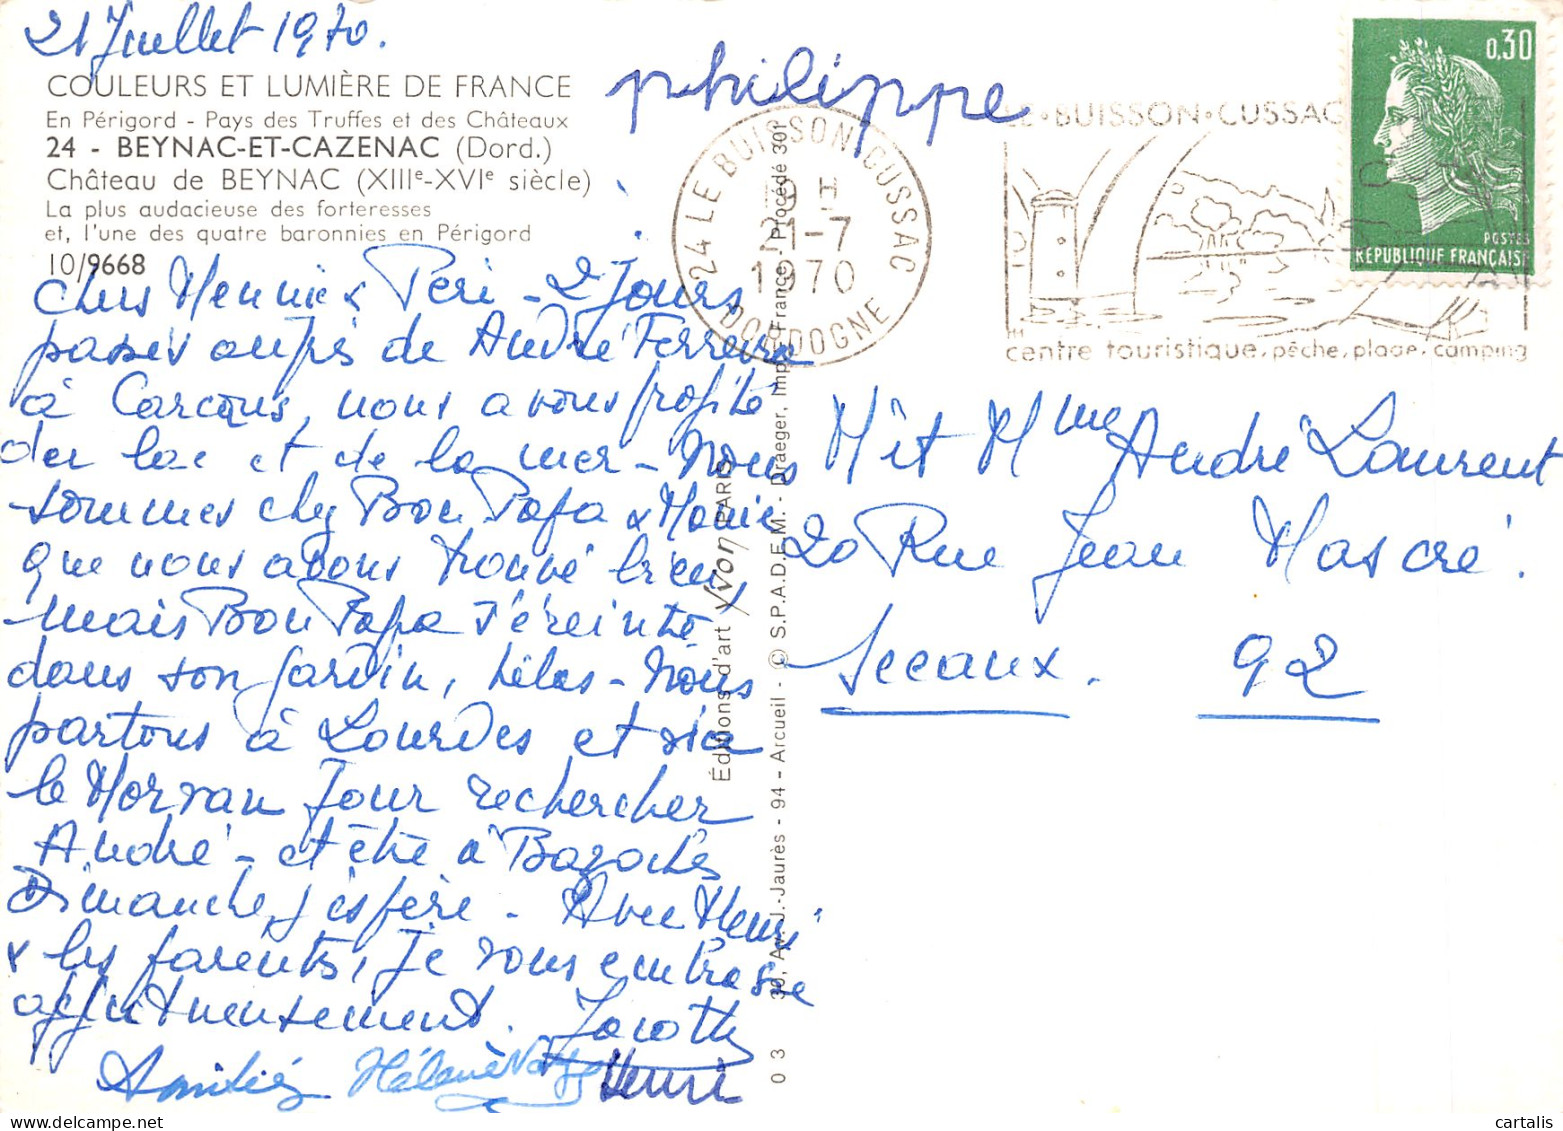 21 Juillet 1970.
COULEURS ET LUMIÈRE DE FRANCE
En Périgord - Pays des Truffes et des Châteaux
24 - BEYNAC-ET-CAZENAC (Dord.)
Château de BEYNAC (XIIIe-XVIe siècle)
La plus audacieuse des forteresses
et, l'une des quatre baronnies en Périgord
10/9668
philippe
Chers & Peri - 2 jours
passés auprès de André Ferreira
à Carcans, nous avons profité
du lac et de la mer - Nous
sommes chez Bon Papa &
que nous avons trouvé bien,
mais Bon Papa s'éreinte
dans son jardin, hélas - Nous
partons à Lourdes et via
le Morvan pour rechercher
André - et être à Bazoches
Dimanche, j'espère. Avec Henri
& les parents, je vous embrasse
affectueusement. Jacotte
Amitiés Hélène Henri
24 LE BUISSON CUSSAC
19 H
21-7
1970
DORDOGNE
LE-BUISSON-CUSSAC
centre touristique, pêche, plage, camping
0,30
POSTES
RÉPUBLIQUE FRANÇAISE
Mr et Mme André Laurent
20 Rue Jean Mascré.
Sceaux. 92
Éditions d'art Yvon PARIS
03 38, Av. J.-Jaurès - 94 - Arcueil - © S.P.A.D.E.M. - Draeger, Imp. France - Procédé 301
cartalis